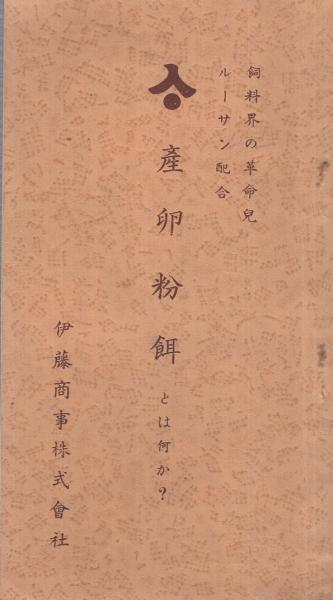 飼料界の革命兒
ルーサン配合
産卵粉餌とは何か?
伊藤商事株式會社